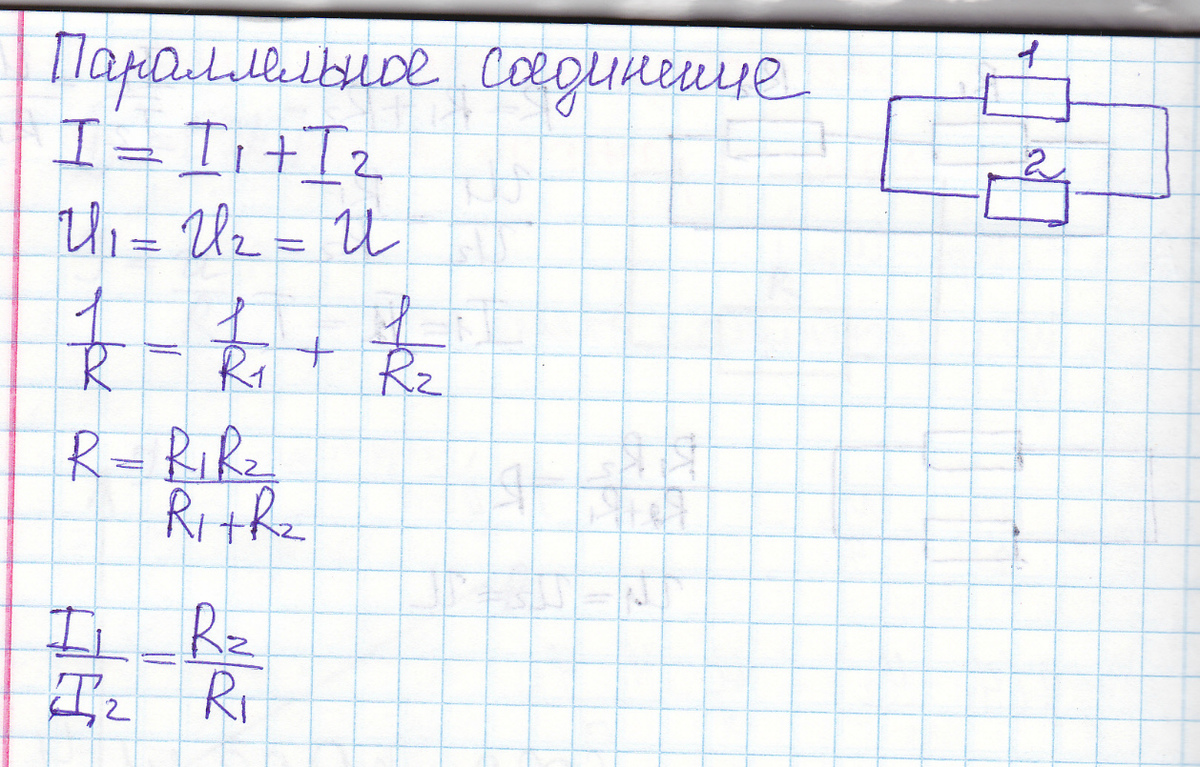 Параллельное соединение
1
2
I = I1 + I2
U1 = U2 = U
1/R = 1/R1 + 1/R2
R = R1R2/R1+R2
I1/I2 = R2/R1